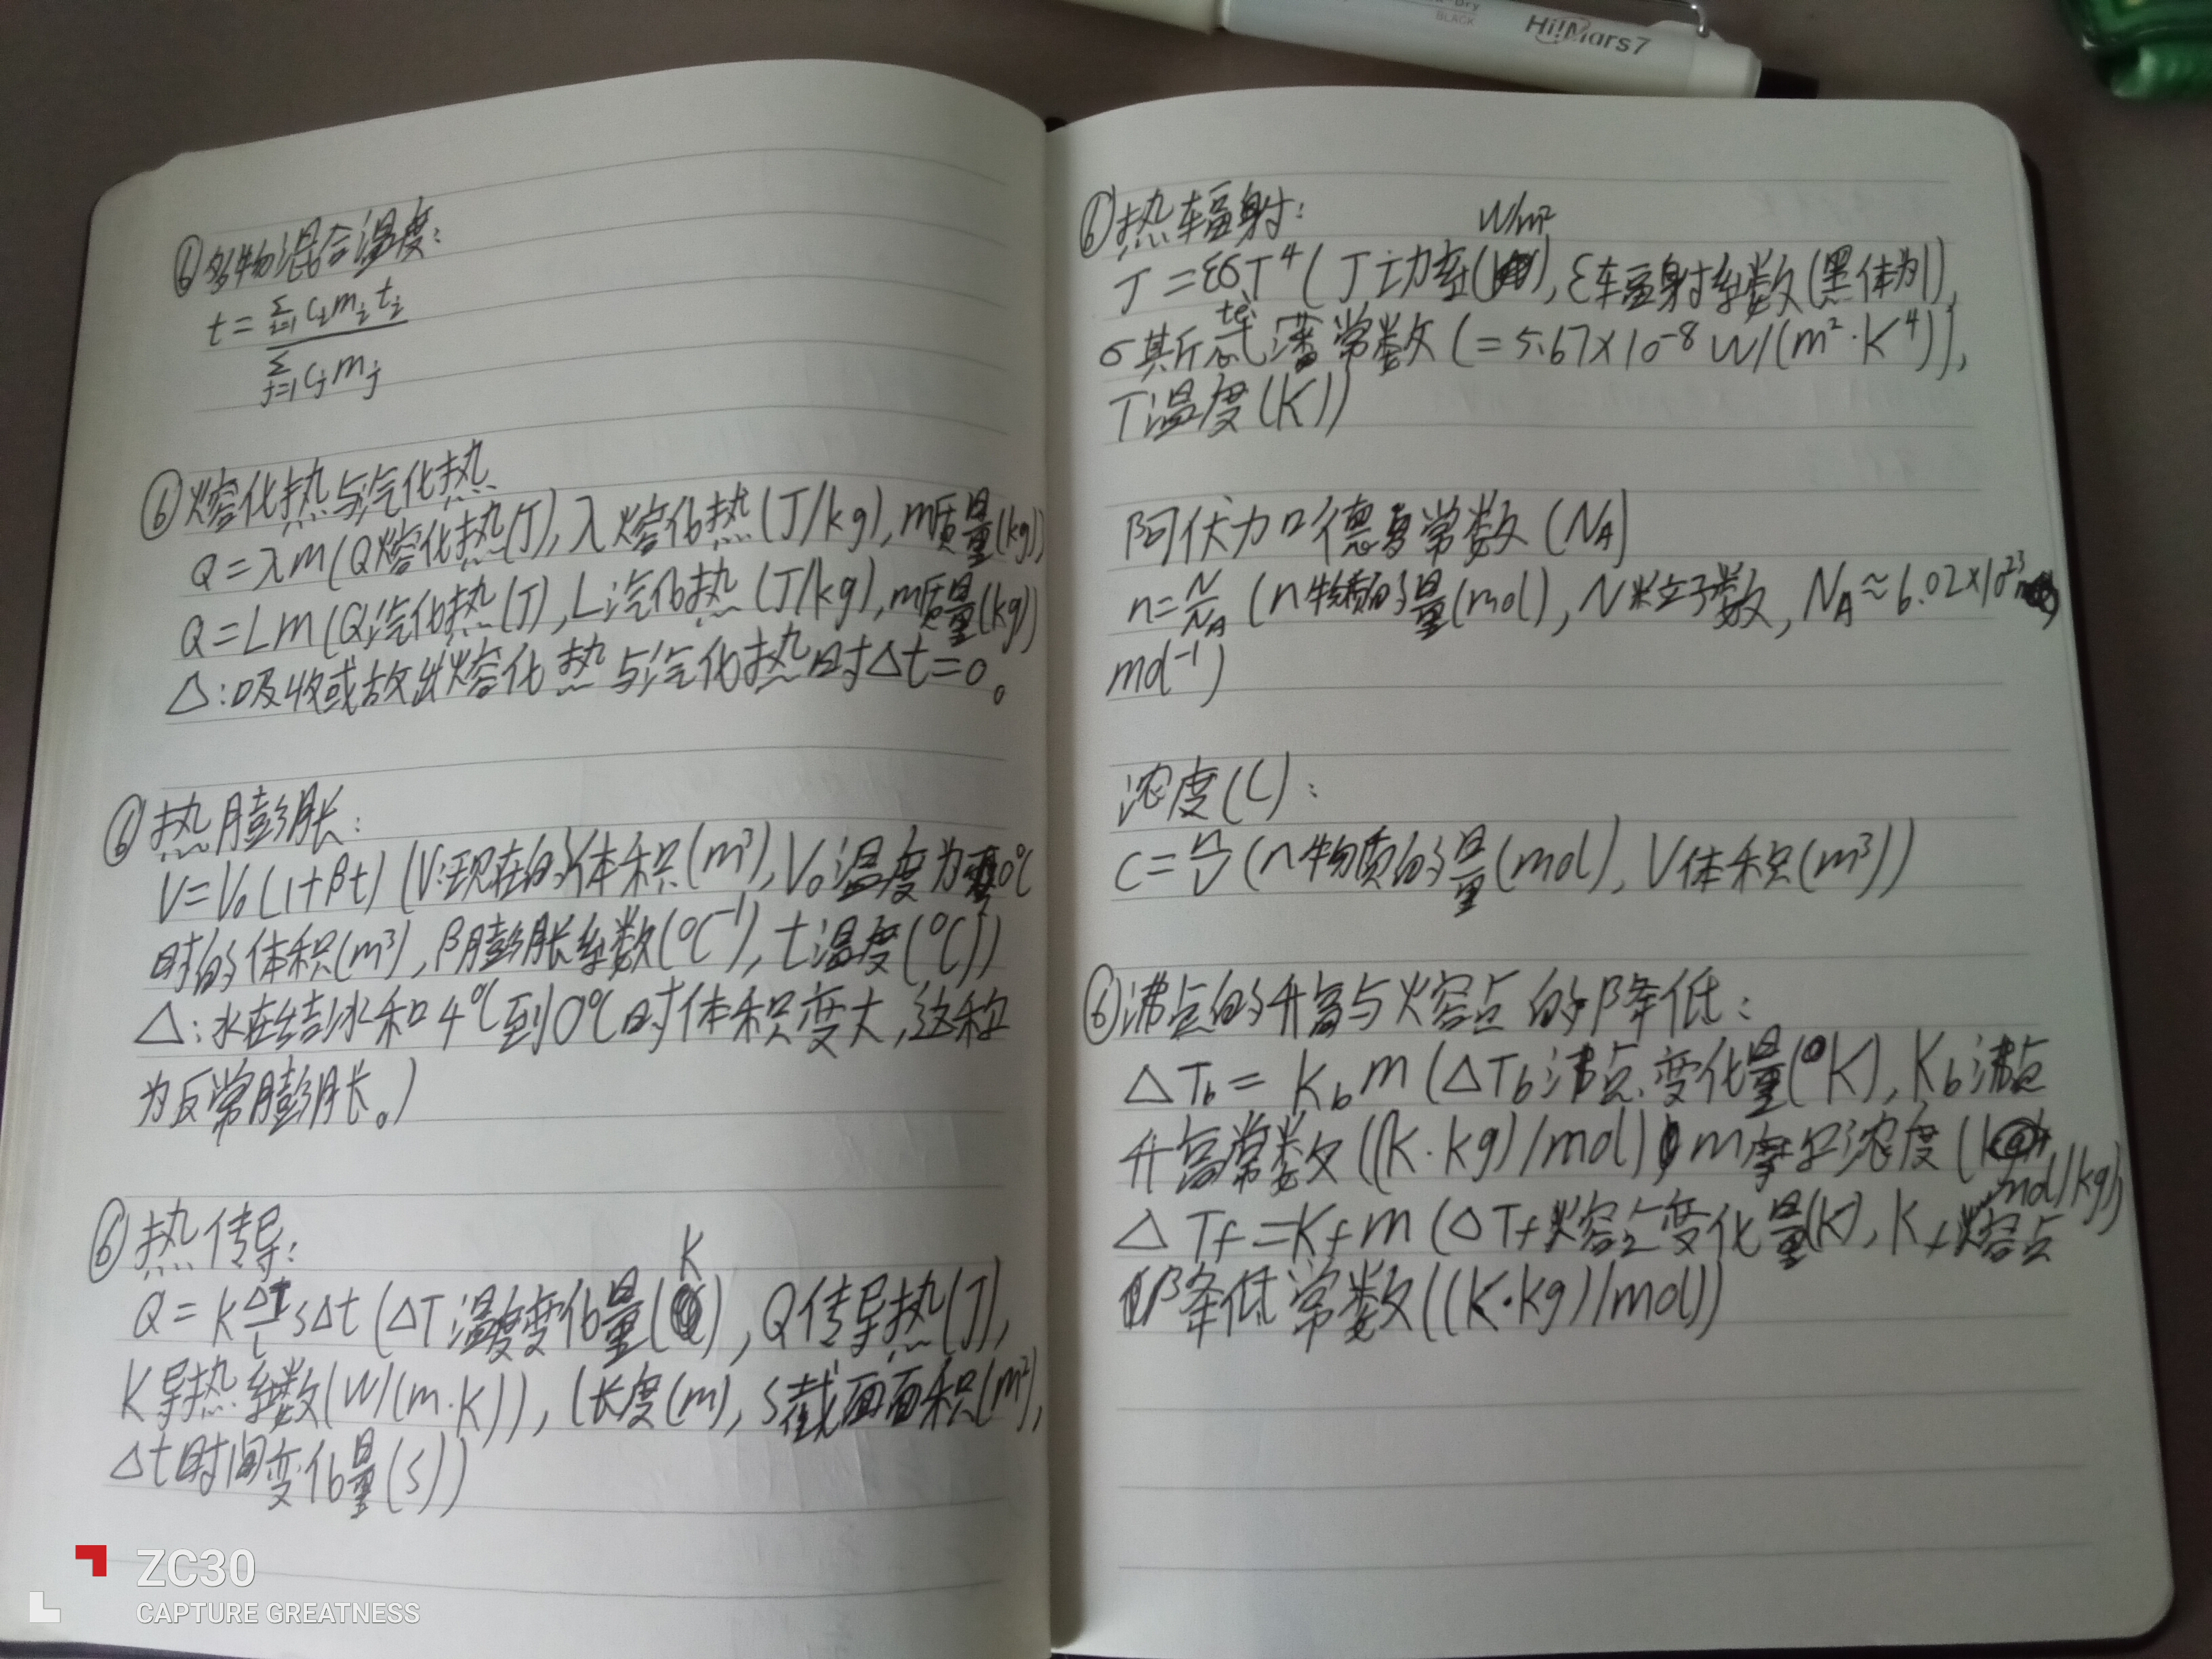 BLACK
Hi!Mars7
⑥多物混合温度:
t=
∑i=1 cᵢmᵢtᵢ
∑j=1 cⱼmⱼ
⑥熔化热与汽化热
Q=λm(Q熔化热(J),λ熔化热(J/kg),m质量(kg))
Q=Lm(Q汽化热(J),L汽化热(J/kg),m质量(kg))
△:吸收或放出熔化热与汽化热时△t=0。
⑥热膨胀:
V=V₀(1+βt)(V:现在的体积(m³),V₀温度为0℃
时的体积(m³),β膨胀系数(℃⁻¹),t温度(℃))
△:水在结冰和4℃到0℃时体积变大,这称
为反常膨胀。)
⑥热传导:
K
Q=k ΔT/l sΔt(ΔT温度变化量( ),Q传导热(J),
K导热系数(W/(m·K)),l长度(m),s截面面积(m²),
Δt时间变化量(s))
⑥热辐射:
W/m²
J=εσT⁴(J功率( ),ε辐射系数(黑体为1),
te
σ其斤忒潘常数(=5.67×10⁻⁸W/(m²·K⁴)),
T温度(K))
阿伏力口德罗常数(Nᴀ)
n=N/Nᴀ(n物质的量(mol),N粒子数,Nᴀ≈6.02×10²³
mol⁻¹)
浓度(C):
C=n/V(n物质的量(mol),V体积(m³))
⑥沸点的升高与熔点的降低:
△Tb=Kbm(△Tb沸点变化量(K),Kb沸点
升高常数((K·kg)/mol) m摩尔浓度(
mol/kg))
△Tf=Kfm(△Tf熔点变化量(K),Kf熔点
降低常数((K·kg)/mol))
ZC30
CAPTURE GREATNESS